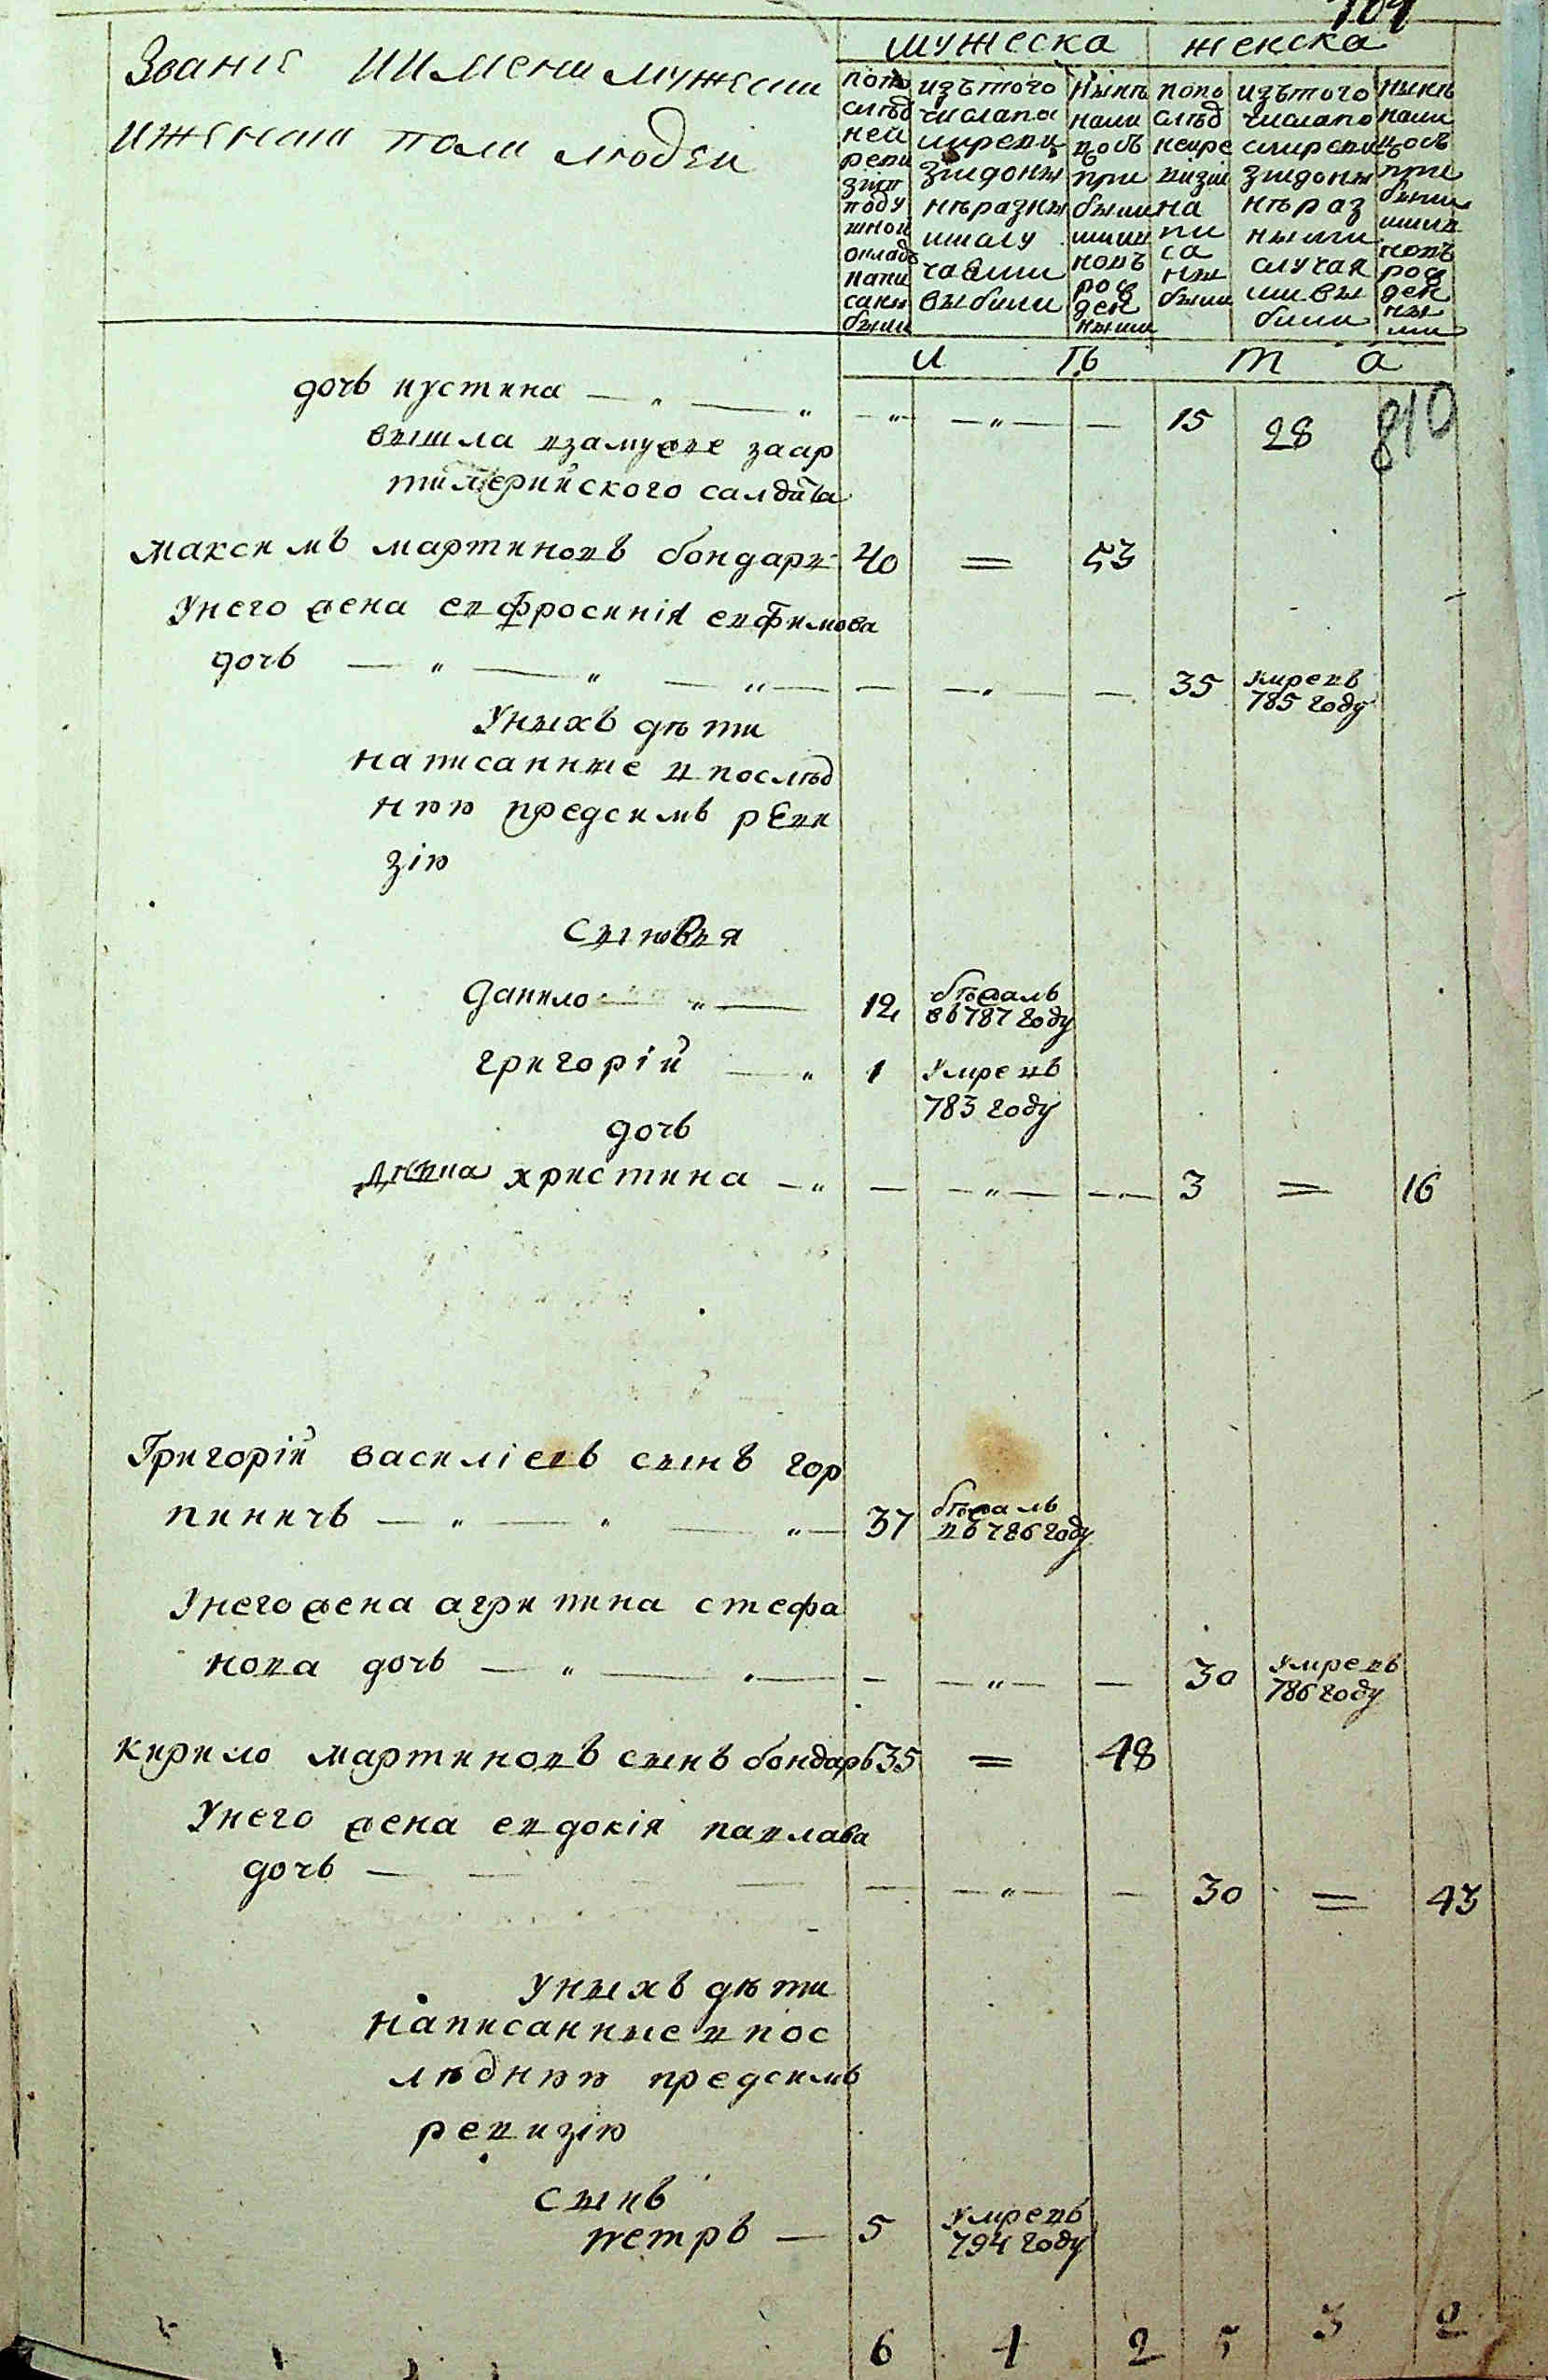 Званіе иимени мужески
иженски пола людеи
мужеска женска
попо слѣд ней реви зіи поду шной окладъ напи саны были
изътого числапо слиреви зиидоны нѣразны мислу чаями выбыли
нынѣ нали цобъ при былиши новъ рож ден ными
попо слѣд нейре визіи на пи са ны были
изътого числапо слиреви зиидоны нѣраз ными случая мивы были
нынѣ нали цобъ при были шии новъ рож ден ны ми
лѣта
дочь иустина — „ — „ — „ — — „ — — 15 28
вышла взамуже заар
тилерийского салдата
максимъ мартиновъ бондарь 40 = 53
Унего жена евфросинія ефимова
дочь — „ — „ — „ — — — „ — — 35 умревъ
785 году
Уныхъ дѣти
написанные впослѣд
нюю предсимъ реви
зію
сыновья
данило — „ — 12 бѣжалъ
въ787 году
григорій — „ 1 Умревъ
783 году
дочь
христина — „ — — „ — — 3 = 16
Григорій василіевъ сынъ гор
пиничъ — „ — „ — „ — 37 бѣжалъ
въ786году
Унегожена агрипина стефа
нова дочь — „ — — — „ — — 30 Умревъ
786году
кирило мартиновъ сынъ бондарь35 = 48
Унего жена евдокія павлава
дочь — — — — — — „ — — 30 = 43
Уныхъ дѣти
написанные впос
лѣднюю предсимъ
ревизію
сынъ
петръ — 5 Умревъ
794 году
6 4 2 5 3 2
810